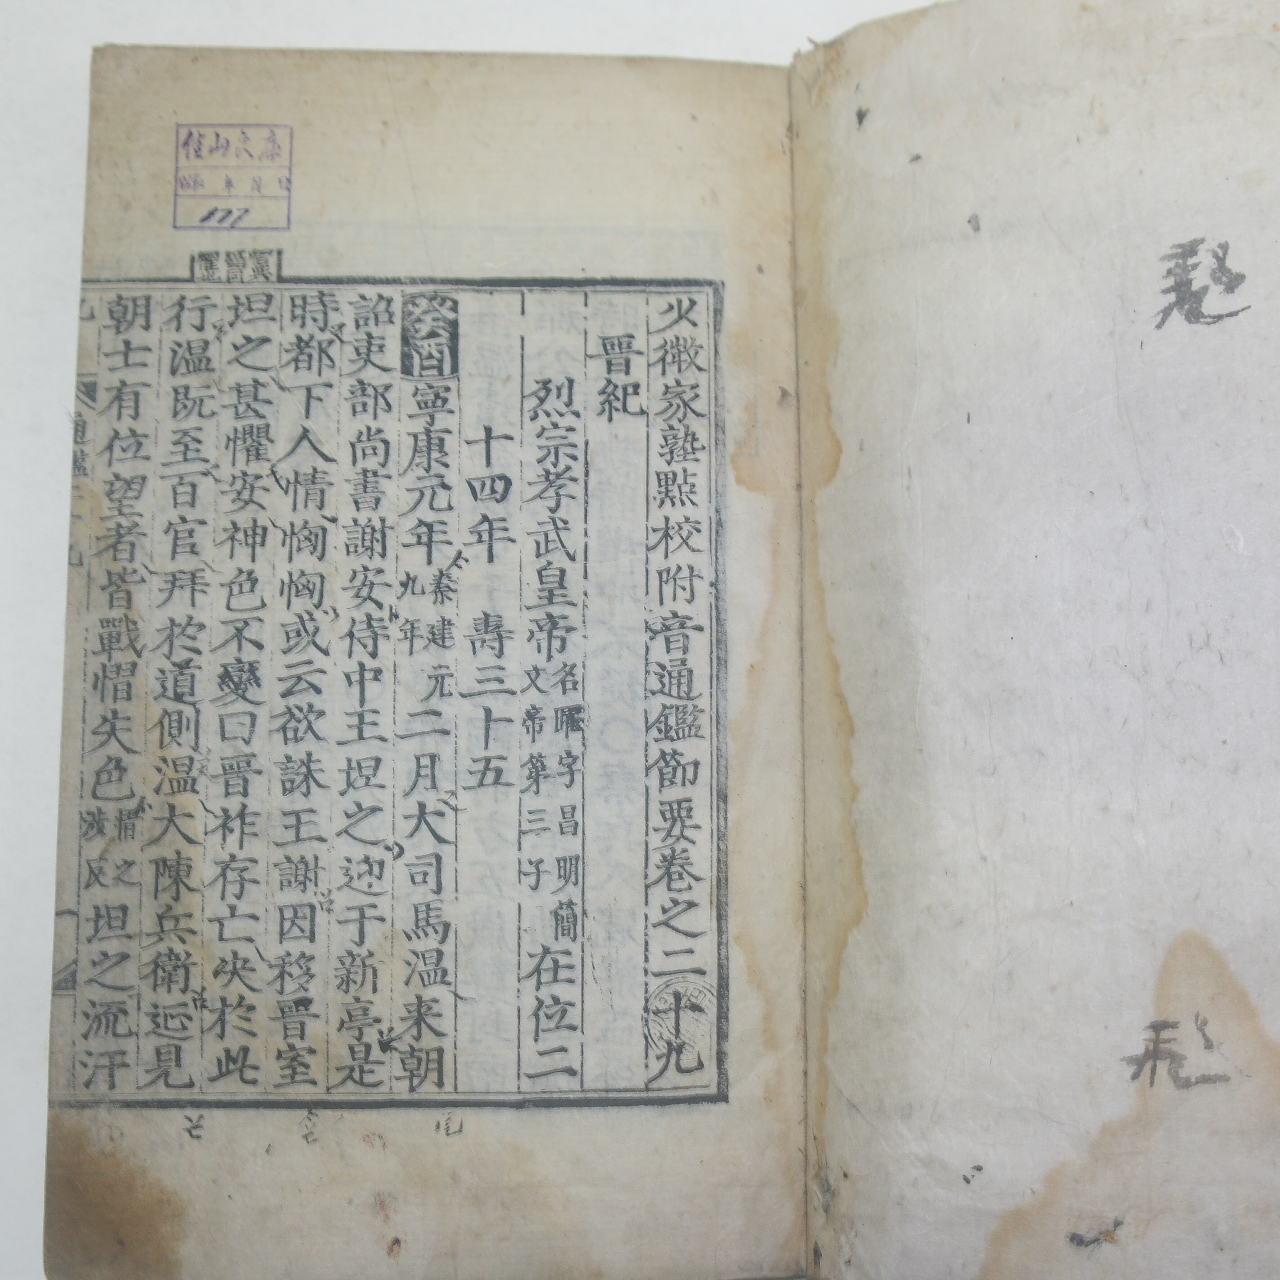 少微家塾點校附音通鑑節要卷之二十九
晉紀
烈宗孝武皇帝名曜字昌明簡文帝第三子在位二
十四年 壽三十五
癸酉寧康元年秦建元九年二月大司馬温来朝
詔吏部尚書謝安侍中王坦之迎于新亭是
時都下人情恟恟或云欲誅王謝因移晉室
坦之甚懼安神色不變曰晉祚存亡决於此
行温既至百官拜於道側温大陳兵衛延見
朝士有位望者皆戰慴失色慴之涉反坦之流汗